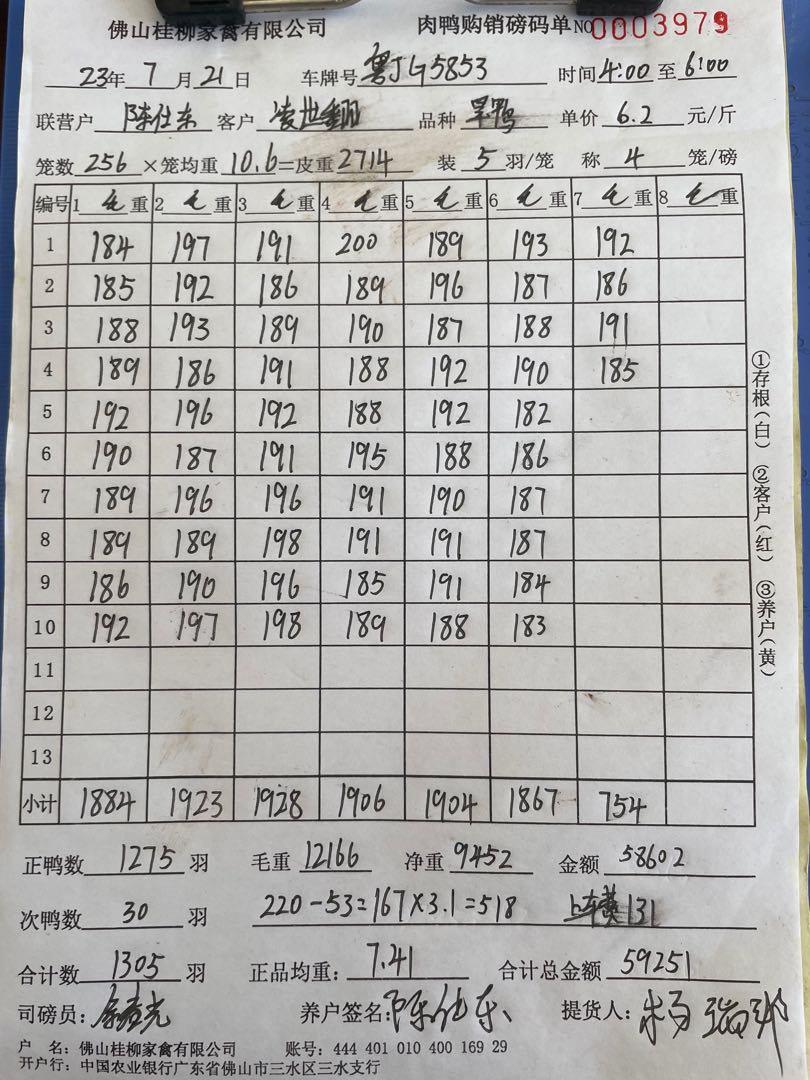 佛山桂柳家禽有限公司 肉鸭购销磅码单 NO 0003979
23年 7月 21日 车牌号 粤J G5853 时间 4:00 至 6:00
联营户 陈仕东 客户 凌世翻 品种 旱鸭 单价 6.2 元/斤
笼数 256 ×笼均重 10.6 =皮重 2714 装 5 羽/笼 称 4 笼/磅
编号 1 毛重 2 毛重 3 毛重 4 毛重 5 毛重 6 毛重 7 毛重 8 毛重
1 184 197 191 200 189 193 192
2 185 192 186 189 196 187 186
3 188 193 189 190 187 188 191
4 189 186 191 188 192 190 185
5 192 196 192 188 192 182
6 190 187 191 195 188 186
7 189 196 196 191 190 187
8 189 189 198 191 191 187
9 186 190 196 185 191 184
10 192 197 198 189 188 183
11
12
13
小计 1884 1923 1928 1906 1904 1867 754
①存根(白) ②客户(红) ③养户(黄)
正鸭数 1275 羽 毛重 12166 净重 9452 金额 58602
次鸭数 30 羽 220-53=167×3.1=518 上车费 131
合计数 1305 羽 正品均重: 7.41 合计总金额 59251
司磅员: 养户签名: 陈仕东 提货人: 杨
户 名: 佛山桂柳家禽有限公司 账号: 444 401 010 400 169 29
开户行: 中国农业银行广东省佛山市三水区三水支行